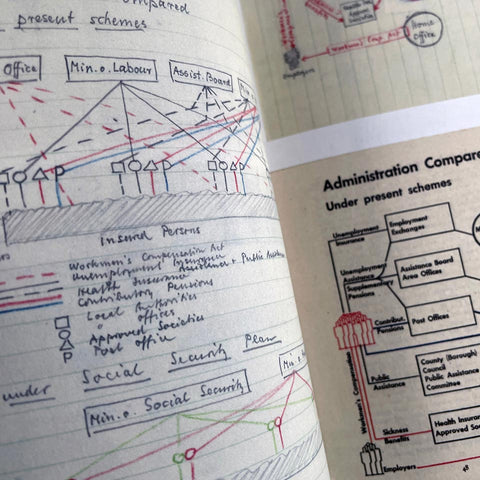 Compared
present schemes
Office
Min. o. Labour
Assist. Board
Insured Persons
Workmen's Compensation Act
Unemployment Insurance
Assistance + Public Assistance
Health Insurance
Contributory Pensions
Local Authorities
" Offices
Approved Societies
P Post Office
under Social Security Plan
Min. o. Social Security
Min. o.
Home Office
Workmen's Comp. Act
Employers
Administration Compare
Under present schemes
Unemployment Insurance
Employment Exchanges
Unemployment Assistance
Supplementary Pensions
Assistance Board
Area Offices
Contribut. Pensions
Post Offices
Workmen's Compensation
Public Assistance
County (Borough)
Council
Public Assistance
Committee
Sickness Benefits
Health Insuran
Approved Soc
Employers
48